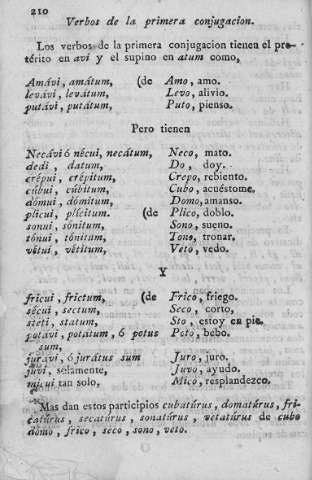 210
Verbos de la primera conjugacion.
Los verbos de la primera conjugacion tienen el pre-
térito en avi y el supino en atum como,
Amávi, amátum, (de Amo, amo.
levávi, levátum, Levo, alivio.
putávi, putátum, Puto, pienso.
Pero tienen
Necávi ó nécui, necátum, Neco, mato.
dedi, datum, Do, doy.
crépui, crépitum, Crepo, rebiento.
cúbui, cúbitum, Cubo, acuéstome.
dómui, dómitum, Domo, amanso.
plicui, plícitum. (de Plico, doblo.
sonui, sónitum, Sono, sueno.
tónui, tónitum, Tono, tronar.
vétui, vétitum, Veto, vedo.
Y
fricui, frictum, (de Frico, friego.
sécui, sectum, Seco, corto,
steti, statum, Sto, estoy en pie.
potávi, potátum, ó potus Poto, bebo.
sum,
jurávi, ó jurátus sum Juro, juro.
juvi, solamente, Juvo, ayudo.
micui tan solo, Mico, resplandezco.
Mas dan estos participios cubatúrus, domatúrus, fri-
catúrus, secatúrus, sonatúrus, vetatúrus de cubo
domo, frico, seco, sono, veto.